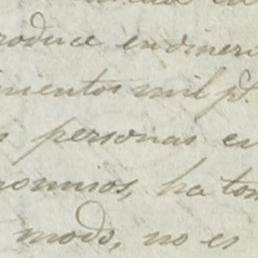 roduce en diner
mentos mil p.
s personas en
ha to
modo, no es